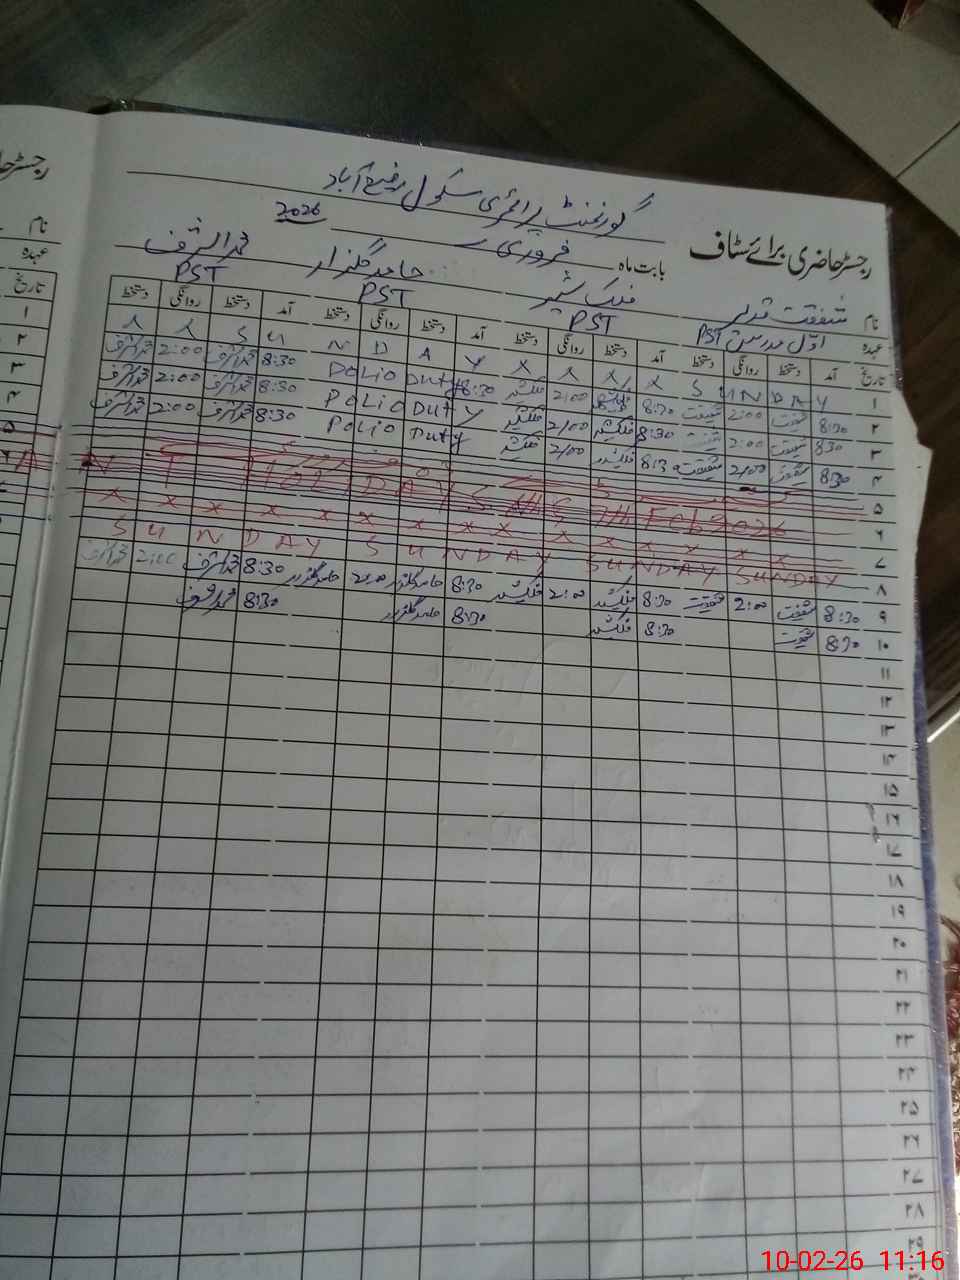 رجسٹر حاضری برائے سٹاف
گورنمنٹ پرائمری سکول رفیع آباد
بابت ماہ فروری 2026
نام شفقت قدیر فلک شیر حامد گلزار محمد اشرف
عہدہ اوّل مدرس PST PST PST PST
تاریخ آمد دستخط روانگی دستخط آمد دستخط روانگی دستخط آمد دستخط روانگی دستخط آمد دستخط روانگی دستخط
۱ SUNDAY X X X X SUNDAY X X
۲ 8:30 شفقت 2:00 شفقت 8:30 فلک شیر 2:00 فلک شیر 8:30 Polio Duty 8:30 محمد اشرف 2:00 محمد اشرف
۳ 8:30 شفقت 2:00 شفقت 8:30 فلک شیر 2/00 فلک شیر Polio Duty 8:30 محمد اشرف 2:00 محمد اشرف
۴ 8:30 شفقت 2/00 شفقت 8:30 فلک شیر 2/00 فلک شیر Polio Duty 8:30 محمد اشرف 2:00 محمد اشرف
۵
۶ HOLIDAYS 7th Feb 2026
۷ x x x x x x x x x x x x x x
۸ SUNDAY SUNDAY SUNDAY SUNDAY
۹ 8:30 شفقت 2:00 شفقت 8:30 فلک شیر 2:00 فلک شیر 8:30 حامد گلزار 2:00 حامد گلزار 8:30 محمد اشرف 2:00 محمد اشرف
۱۰ 8:30 شفقت 8:30 فلک شیر 8:30 حامد گلزار 8:30 محمد اشرف
۱۱
۱۲
۱۳
۱۴
۱۵
۱۶
۱۷
۱۸
۱۹
۲۰
۲۱
۲۲
۲۳
۲۴
۲۵
۲۶
۲۷
۲۸
۲۹
رجسٹر حا
نام
عہدہ
تاریخ
۱
۲
۳
۴
۵
10-02-26 11:16